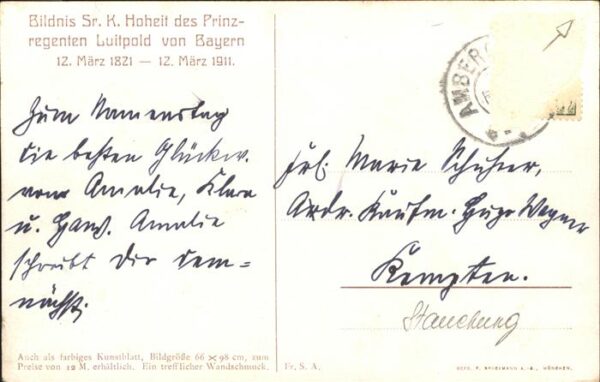 Bildnis Sr. K. Hoheit des Prinz-
regenten Luitpold von Bayern
12. März 1821 — 12. März 1911.
Zum Namenstag
die besten Glückw.
von Amalie, Klara
u. Hans. Amalie
schreibt Dir dem-
nächst.
Auch als farbiges Kunstblatt, Bildgröße 66 x 98 cm, zum
Preise von 12 M. erhältlich. Ein trefflicher Wandschmuck.
AMBERG
Frl. Marie
Adr. Kaufm. Hugo Wagner
Kempten.
Fr. S. A.
MÜNCHEN.